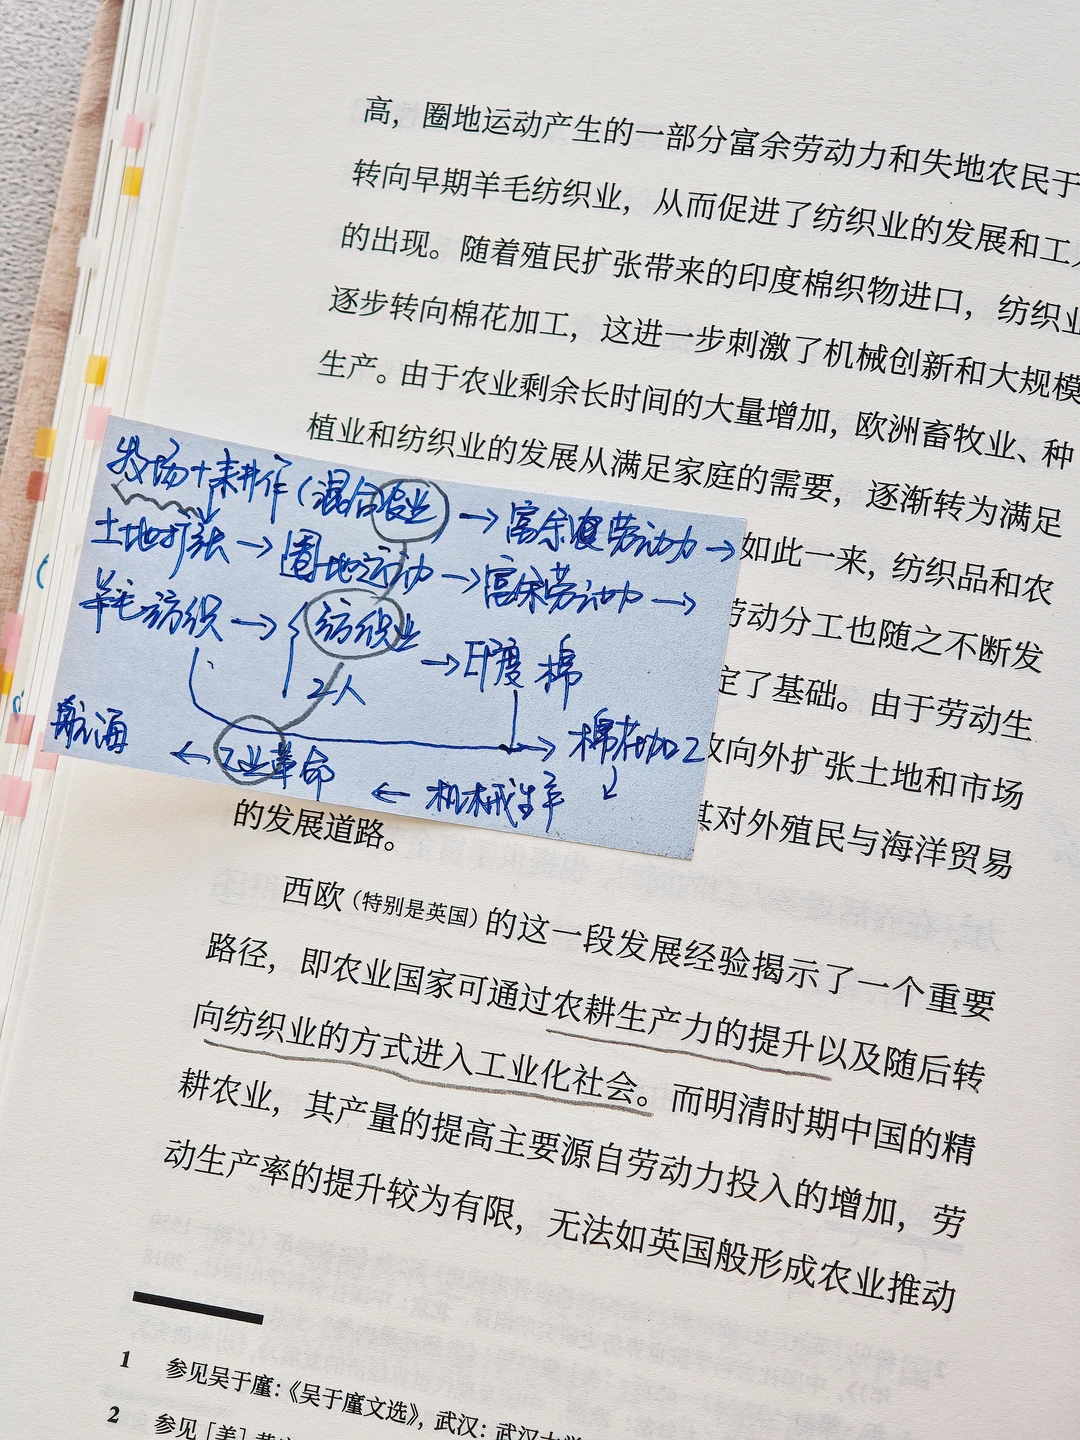 高，圈地运动产生的一部分富余劳动力和失地农民于
转向早期羊毛纺织业，从而促进了纺织业的发展和工
的出现。随着殖民扩张带来的印度棉织物进口，纺织业
逐步转向棉花加工，这进一步刺激了机械创新和大规模
生产。由于农业剩余长时间的大量增加，欧洲畜牧业、种
植业和纺织业的发展从满足家庭的需要，逐渐转为满足
如此一来，纺织品和农
劳动分工也随之不断发
定了基础。由于劳动生
故向外扩张土地和市场
其对外殖民与海洋贸易
的发展道路。
农场+耕作（混合农业）→富余劳动力→
土地扩张→圈地运动→富余劳动力→
羊毛纺织→{纺织业
工人
→印度棉
航海←工业革命
→棉花加工
←机械生产
西欧（特别是英国）的这一段发展经验揭示了一个重要
路径，即农业国家可通过农耕生产力的提升以及随后转
向纺织业的方式进入工业化社会。而明清时期中国的精
耕农业，其产量的提高主要源自劳动力投入的增加，劳
动生产率的提升较为有限，无法如英国般形成农业推动
1 参见吴于廑：《吴于廑文选》，武汉：武汉大学
2 参见［美］